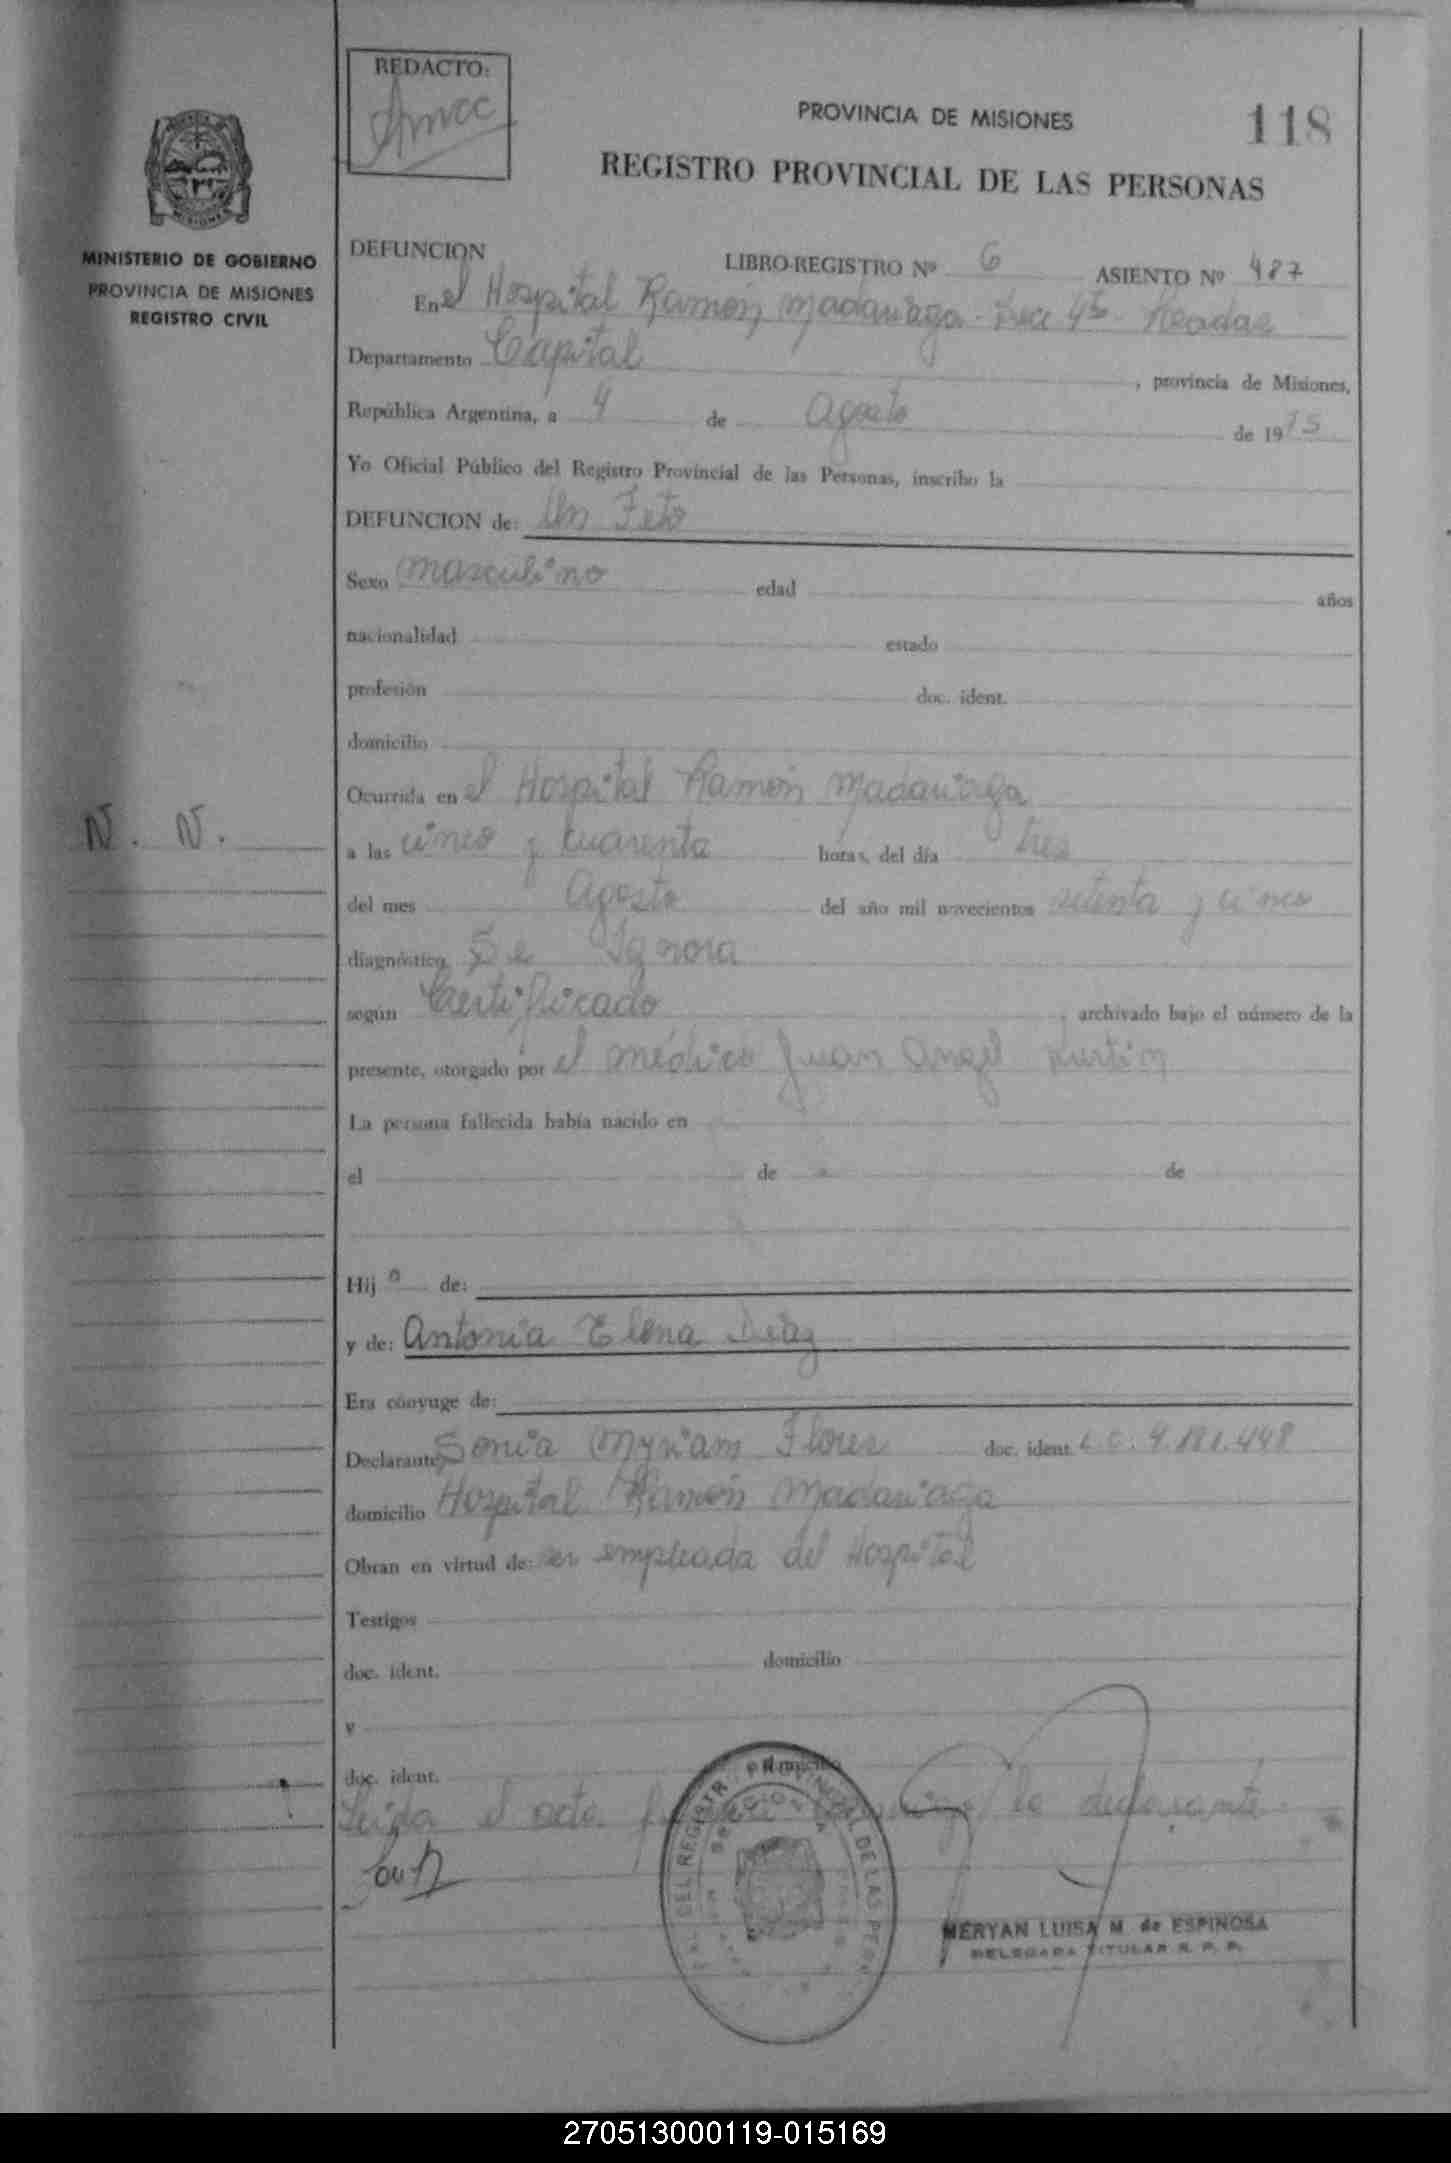 REDACTO:
PROVINCIA DE MISIONES
118
REGISTRO PROVINCIAL DE LAS PERSONAS
MINISTERIO DE GOBIERNO
PROVINCIA DE MISIONES
REGISTRO CIVIL
DEFUNCION LIBRO-REGISTRO Nº 6 ASIENTO Nº 487
En el Hospital Ramón Madariaga
Departamento Capital , provincia de Misiones,
República Argentina, a 4 de Agosto de 1975
Yo Oficial Público del Registro Provincial de las Personas, inscribo la
DEFUNCION de: Un Feto
Sexo masculino edad años
nacionalidad estado
profesión doc. ident.
domicilio
Ocurrida en el Hospital Ramón Madariaga
N. N.
a las cinco y cuarenta horas, del día tres
del mes Agosto del año mil novecientos setenta y cinco
diagnóstico Se Ignora
según Certificado , archivado bajo el número de la
presente, otorgado por el médico Juan Angel
La persona fallecida había nacido en
el de de
Hijo de:
y de: Antonia Elena Diaz
Era cónyuge de:
Declarante Sonia Myriam Flores doc. ident. L.C. 4.181.448
domicilio Hospital Ramón Madariaga
Obran en virtud de: ser empleada del Hospital
Testigos
doc. ident. domicilio
y
doc. ident. domicilio
Leida el acta la declarante
DEL REGISTRO PROVINCIAL DE LAS PERS
MERYAN LUISA M. de ESPINOSA
DELEGADA TITULAR R. P. P.
270513000119-015169